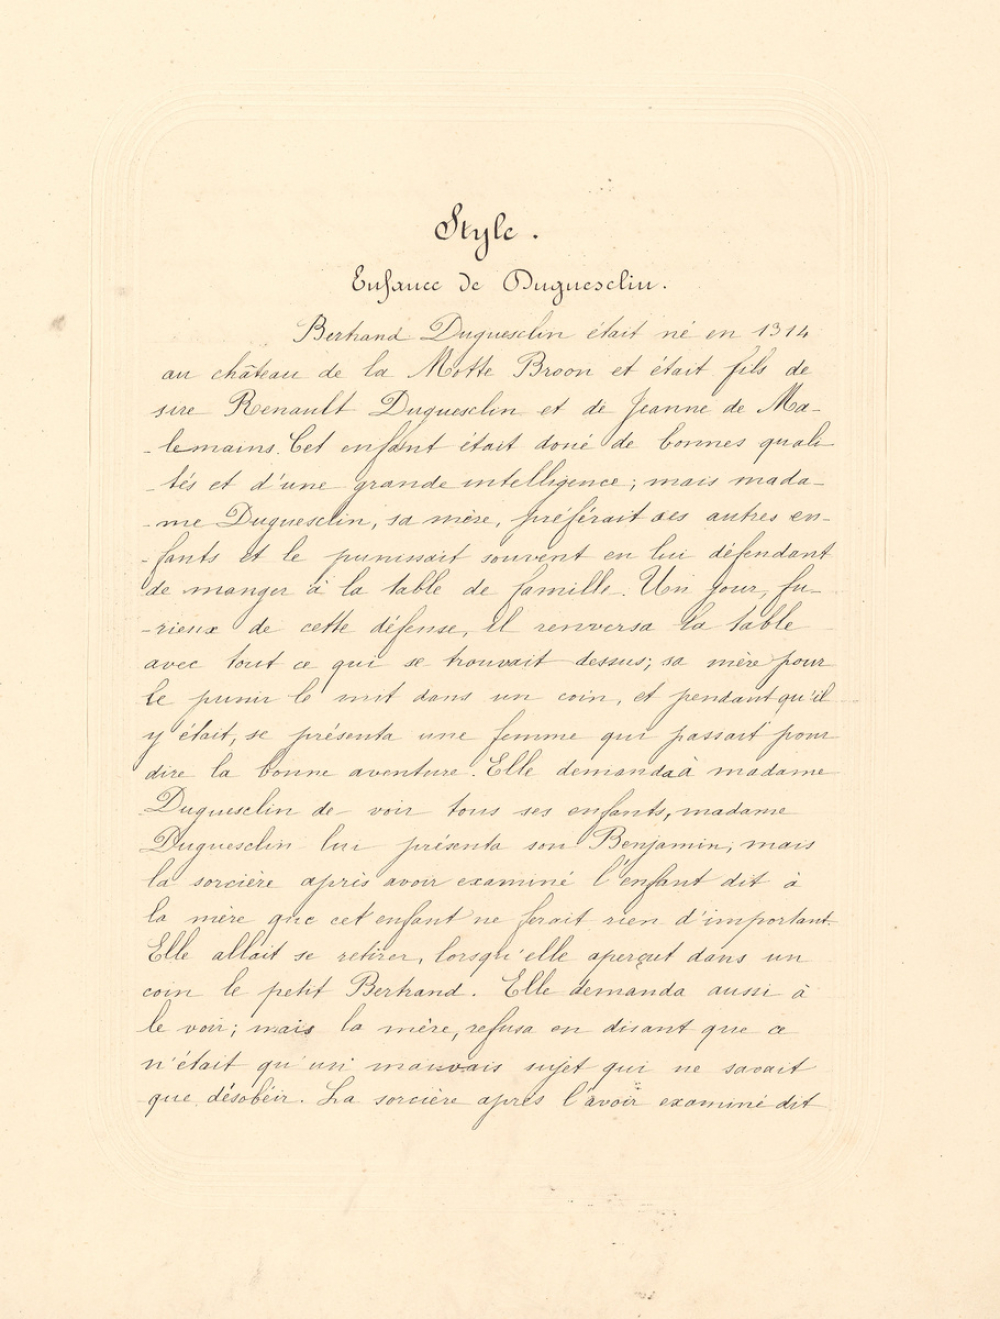 Style.
Enfance de Duguesclin.
Bertrand Duguesclin était né en 1314
au château de la Motte Broon et était fils de
sire Renault Duguesclin et de Jeanne de Ma-
-lemains. Cet enfant était doué de bonnes quali
-tés et d'une grande intelligence; mais mada-
-me Duguesclin, sa mère, préférait ses autres en-
-fants et le punissait souvent en lui défendant
de manger à la table de famille. Un jour, fu-
-rieux de cette défense, il renversa la table
avec tout ce qui se trouvait dessus; sa mère pour
le punir le mit dans un coin, et pendant qu'il
y était, se présenta une femme qui passait pour
dire la bonne aventure. Elle demanda à madame
Duguesclin de voir tous ses enfants, madame
Duguesclin lui présenta son Benjamin; mais
la sorcière après avoir examiné l'enfant dit à
la mère que cet enfant ne ferait rien d'important.
Elle allait se retirer, lorsqu'elle aperçut dans un
coin le petit Bertrand. Elle demanda aussi à
le voir; mais la mère, refusa en disant que ce
n'était qu'un mauvais sujet qui ne savait
que désobéir. La sorcière après l'avoir examiné dit